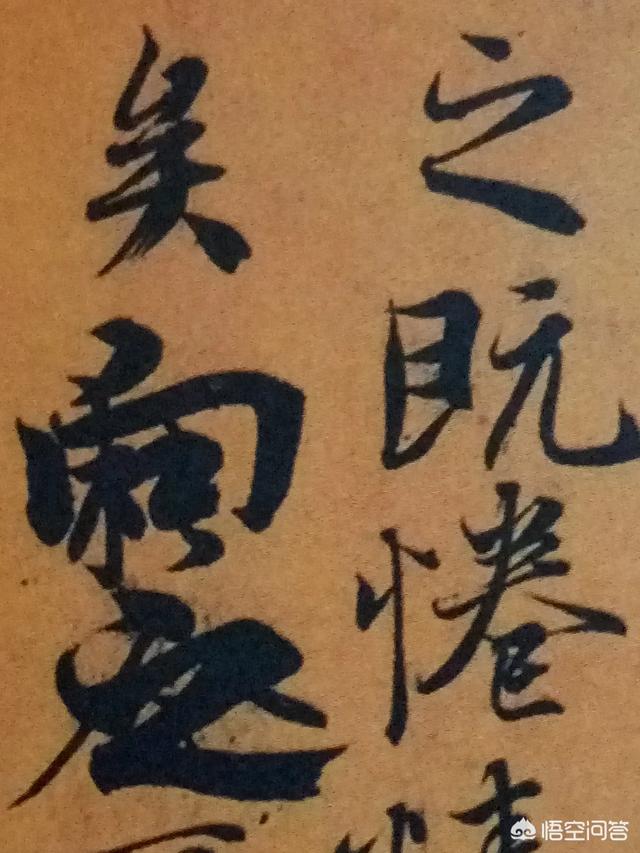 之既惓
矣向之
悟空问答